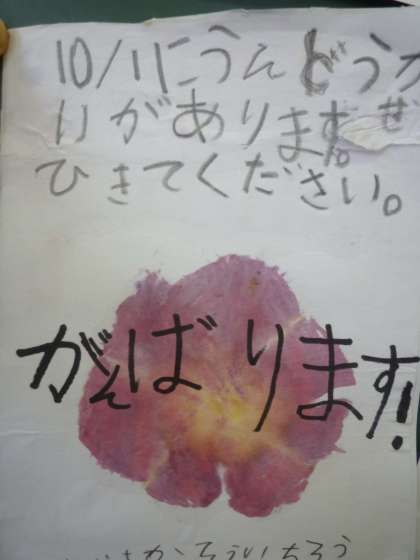 10/1にうんどうか
いがあります。ぜ
ひきてください。
がんばります!